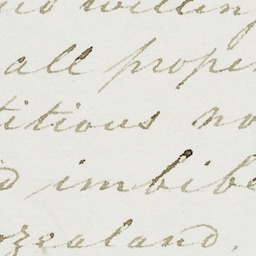 willing
all proper
titious no
d imbibe
zealand.